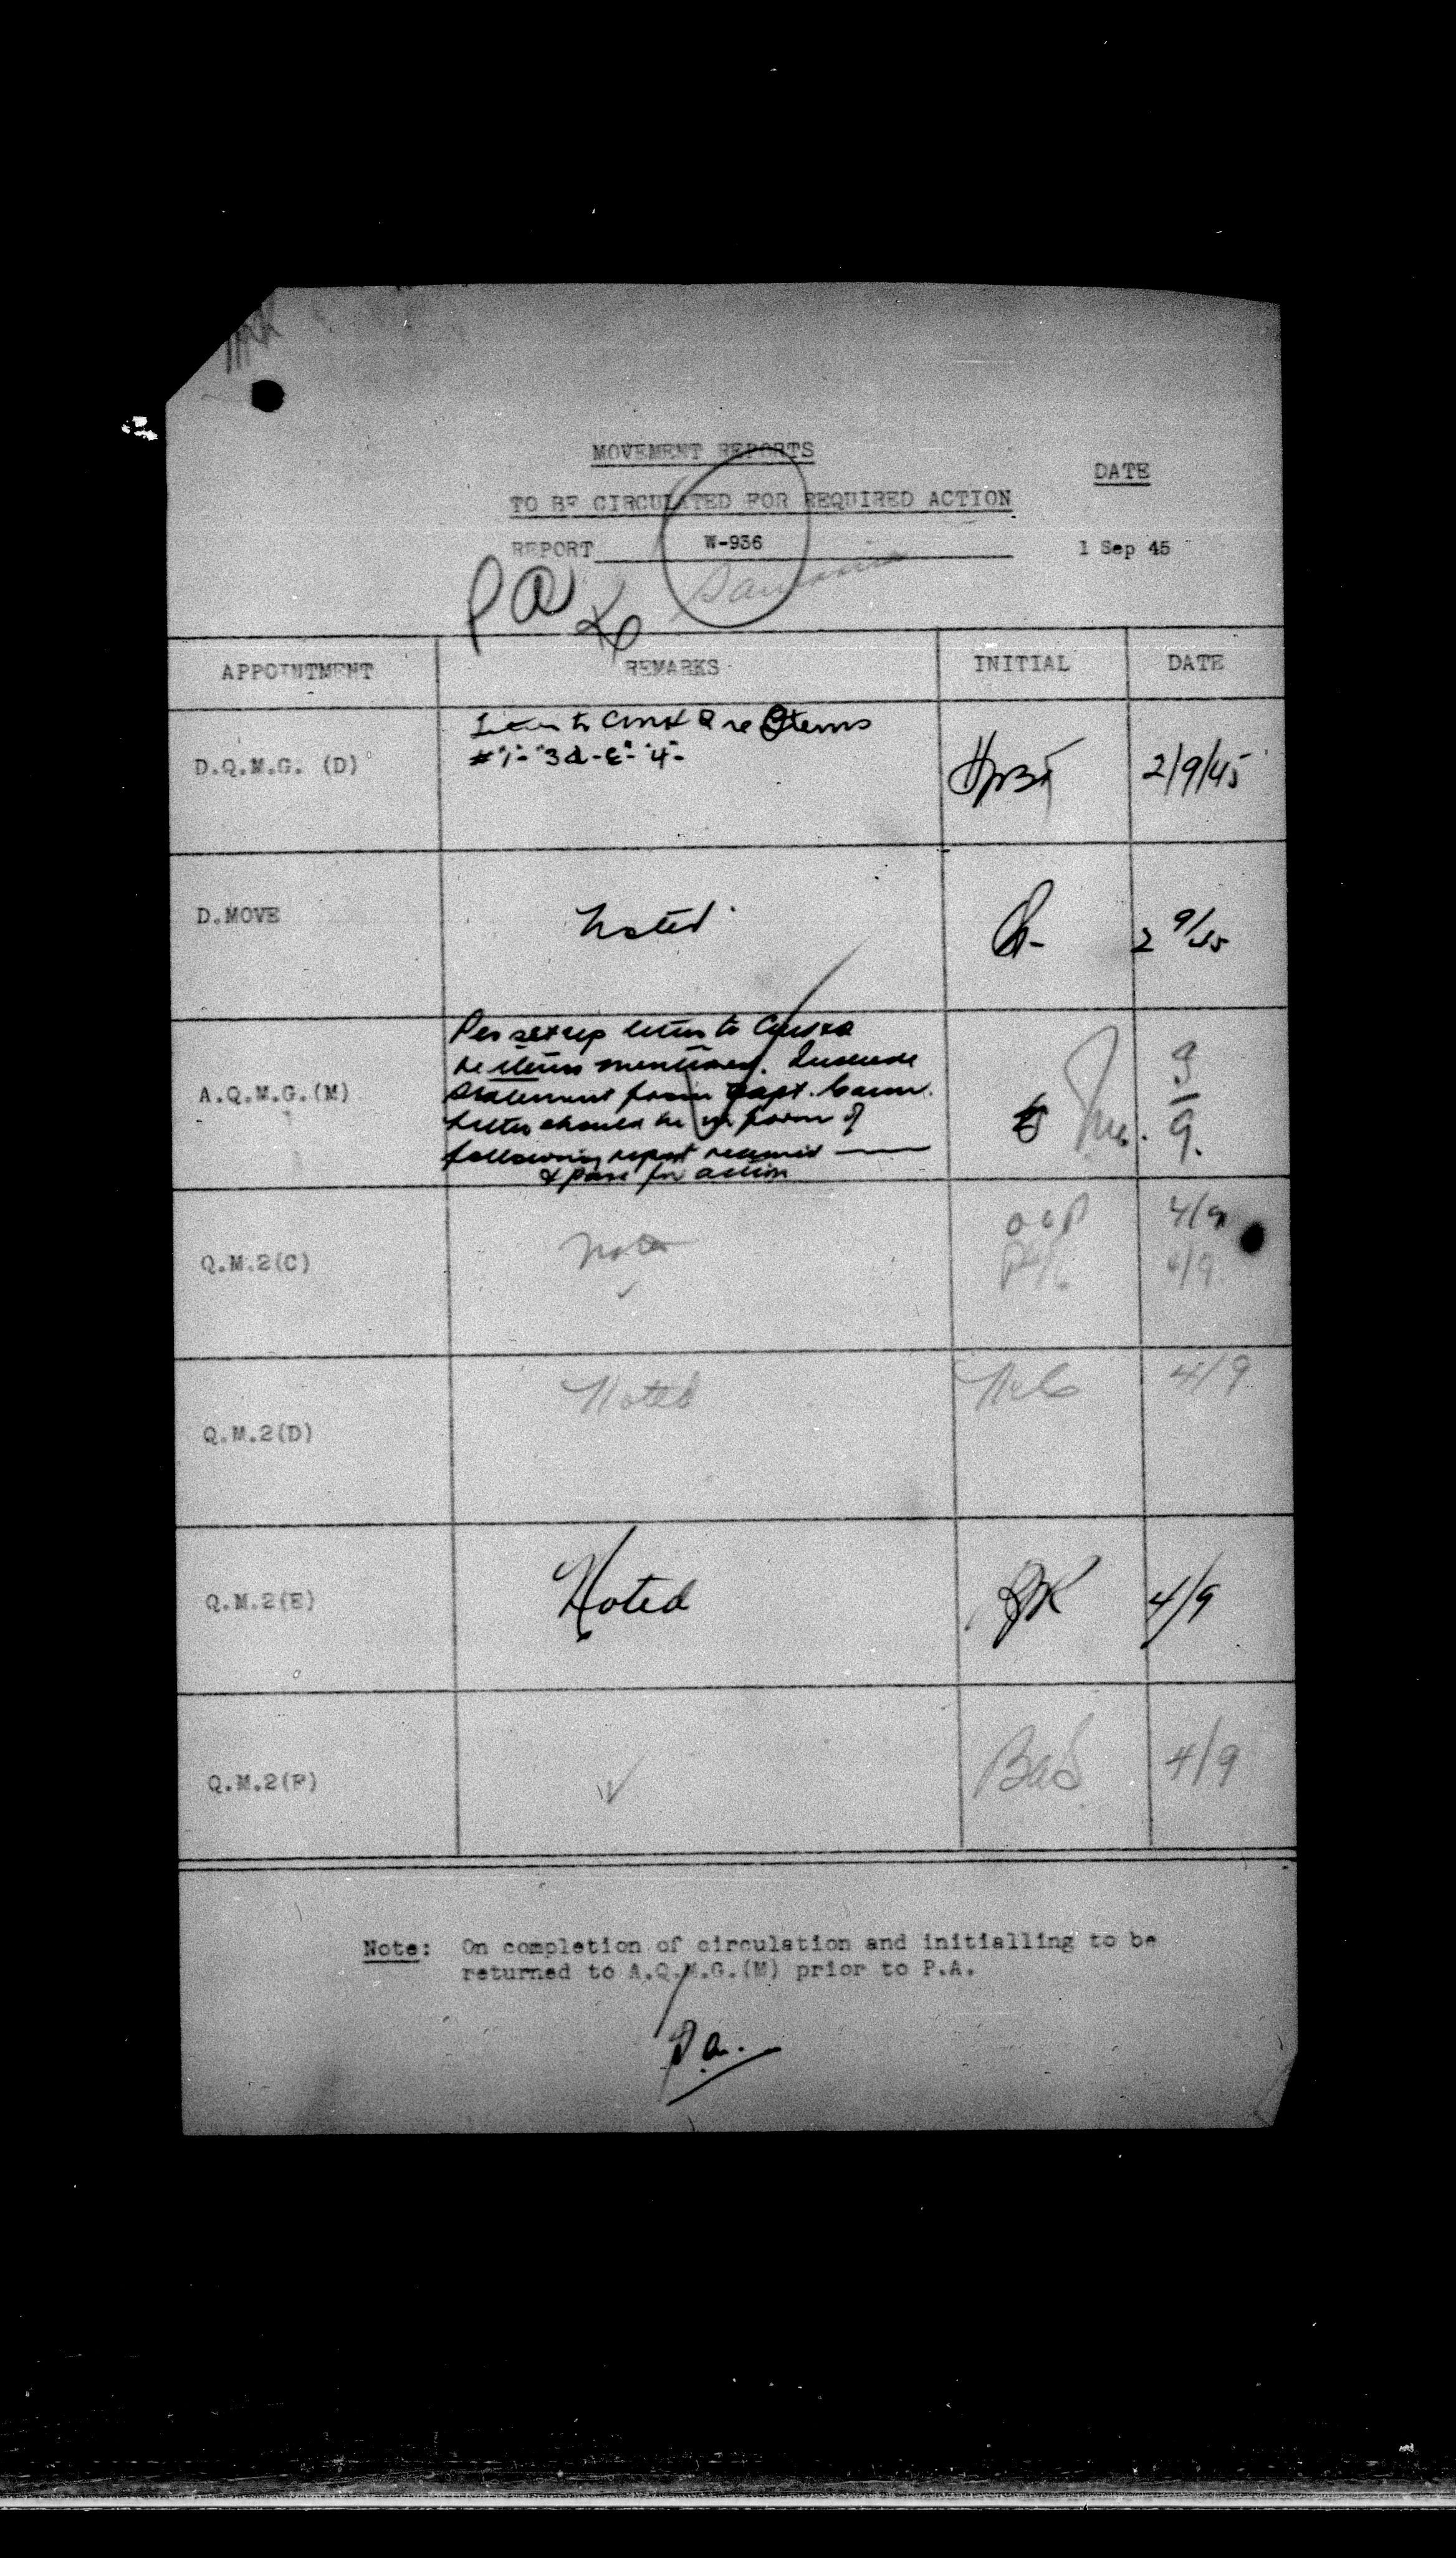 MOVEMENT REPORTS
DATE
TO BE CIRCULATED FOR REQUIRED ACTION
REPORT W-936 1 Sep 45
PA
APPOINTMENT REMARKS INITIAL DATE
to re Items
D.Q.M.G. (D) #"1"-"3d-E"-"4"- 2/9/45
D.MOVE Noted 2 9/45
letter to
re items mentioned. Include
A.Q.M.G.(M) statement from Capt. 3/9.
Letter should be in form of
following report received
& pass for action
Q.M.2(C) Noted 4/9
6/9
Q.M.2(D) Noted 4/9
Q.M.2(E) Noted 4/9
Q.M.2(F) 4/9
Note: On completion of circulation and initialling to be
returned to A.Q.M.G.(M) prior to P.A.
P.A.